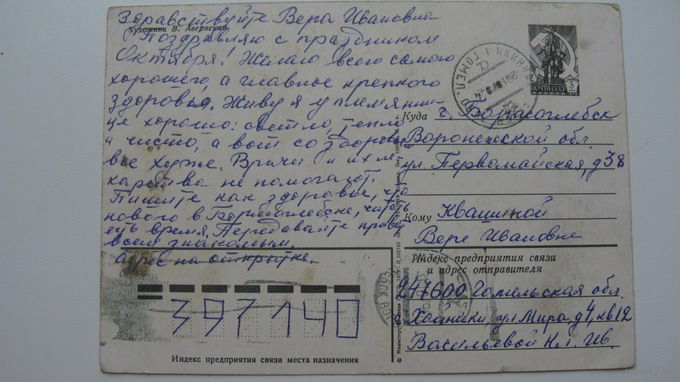 Здравствуйте Вера Ивановна
Художник В. Аверьянов
Поздравляю с праздником
Октября! Желаю всего самого
хорошего, а главное крепкого
здоровья. Живу я у племянни-
це хорошо: светло, тепло
и чисто, а вот со здоровьем
все хуже. Врачи и их ле-
карства не помогают.
Пишите как здоровье, что
нового в Борисоглебске,
есть время. Передавайте привет
всем знакомым.
адрес на открытке.
ПОЧТА СССР
Куда г. Борисоглебск
Воронежской обл.
ул. Первомайская, д 38
Кому Квашиной
Вере Ивановне
Индекс предприятия связи
и адрес отправителя
247600 Гомельская обл.
г. Хойники, ул Мира д 4, кв 12
Васильевой Кл. Ив.
397140
Индекс предприятия связи места назначения